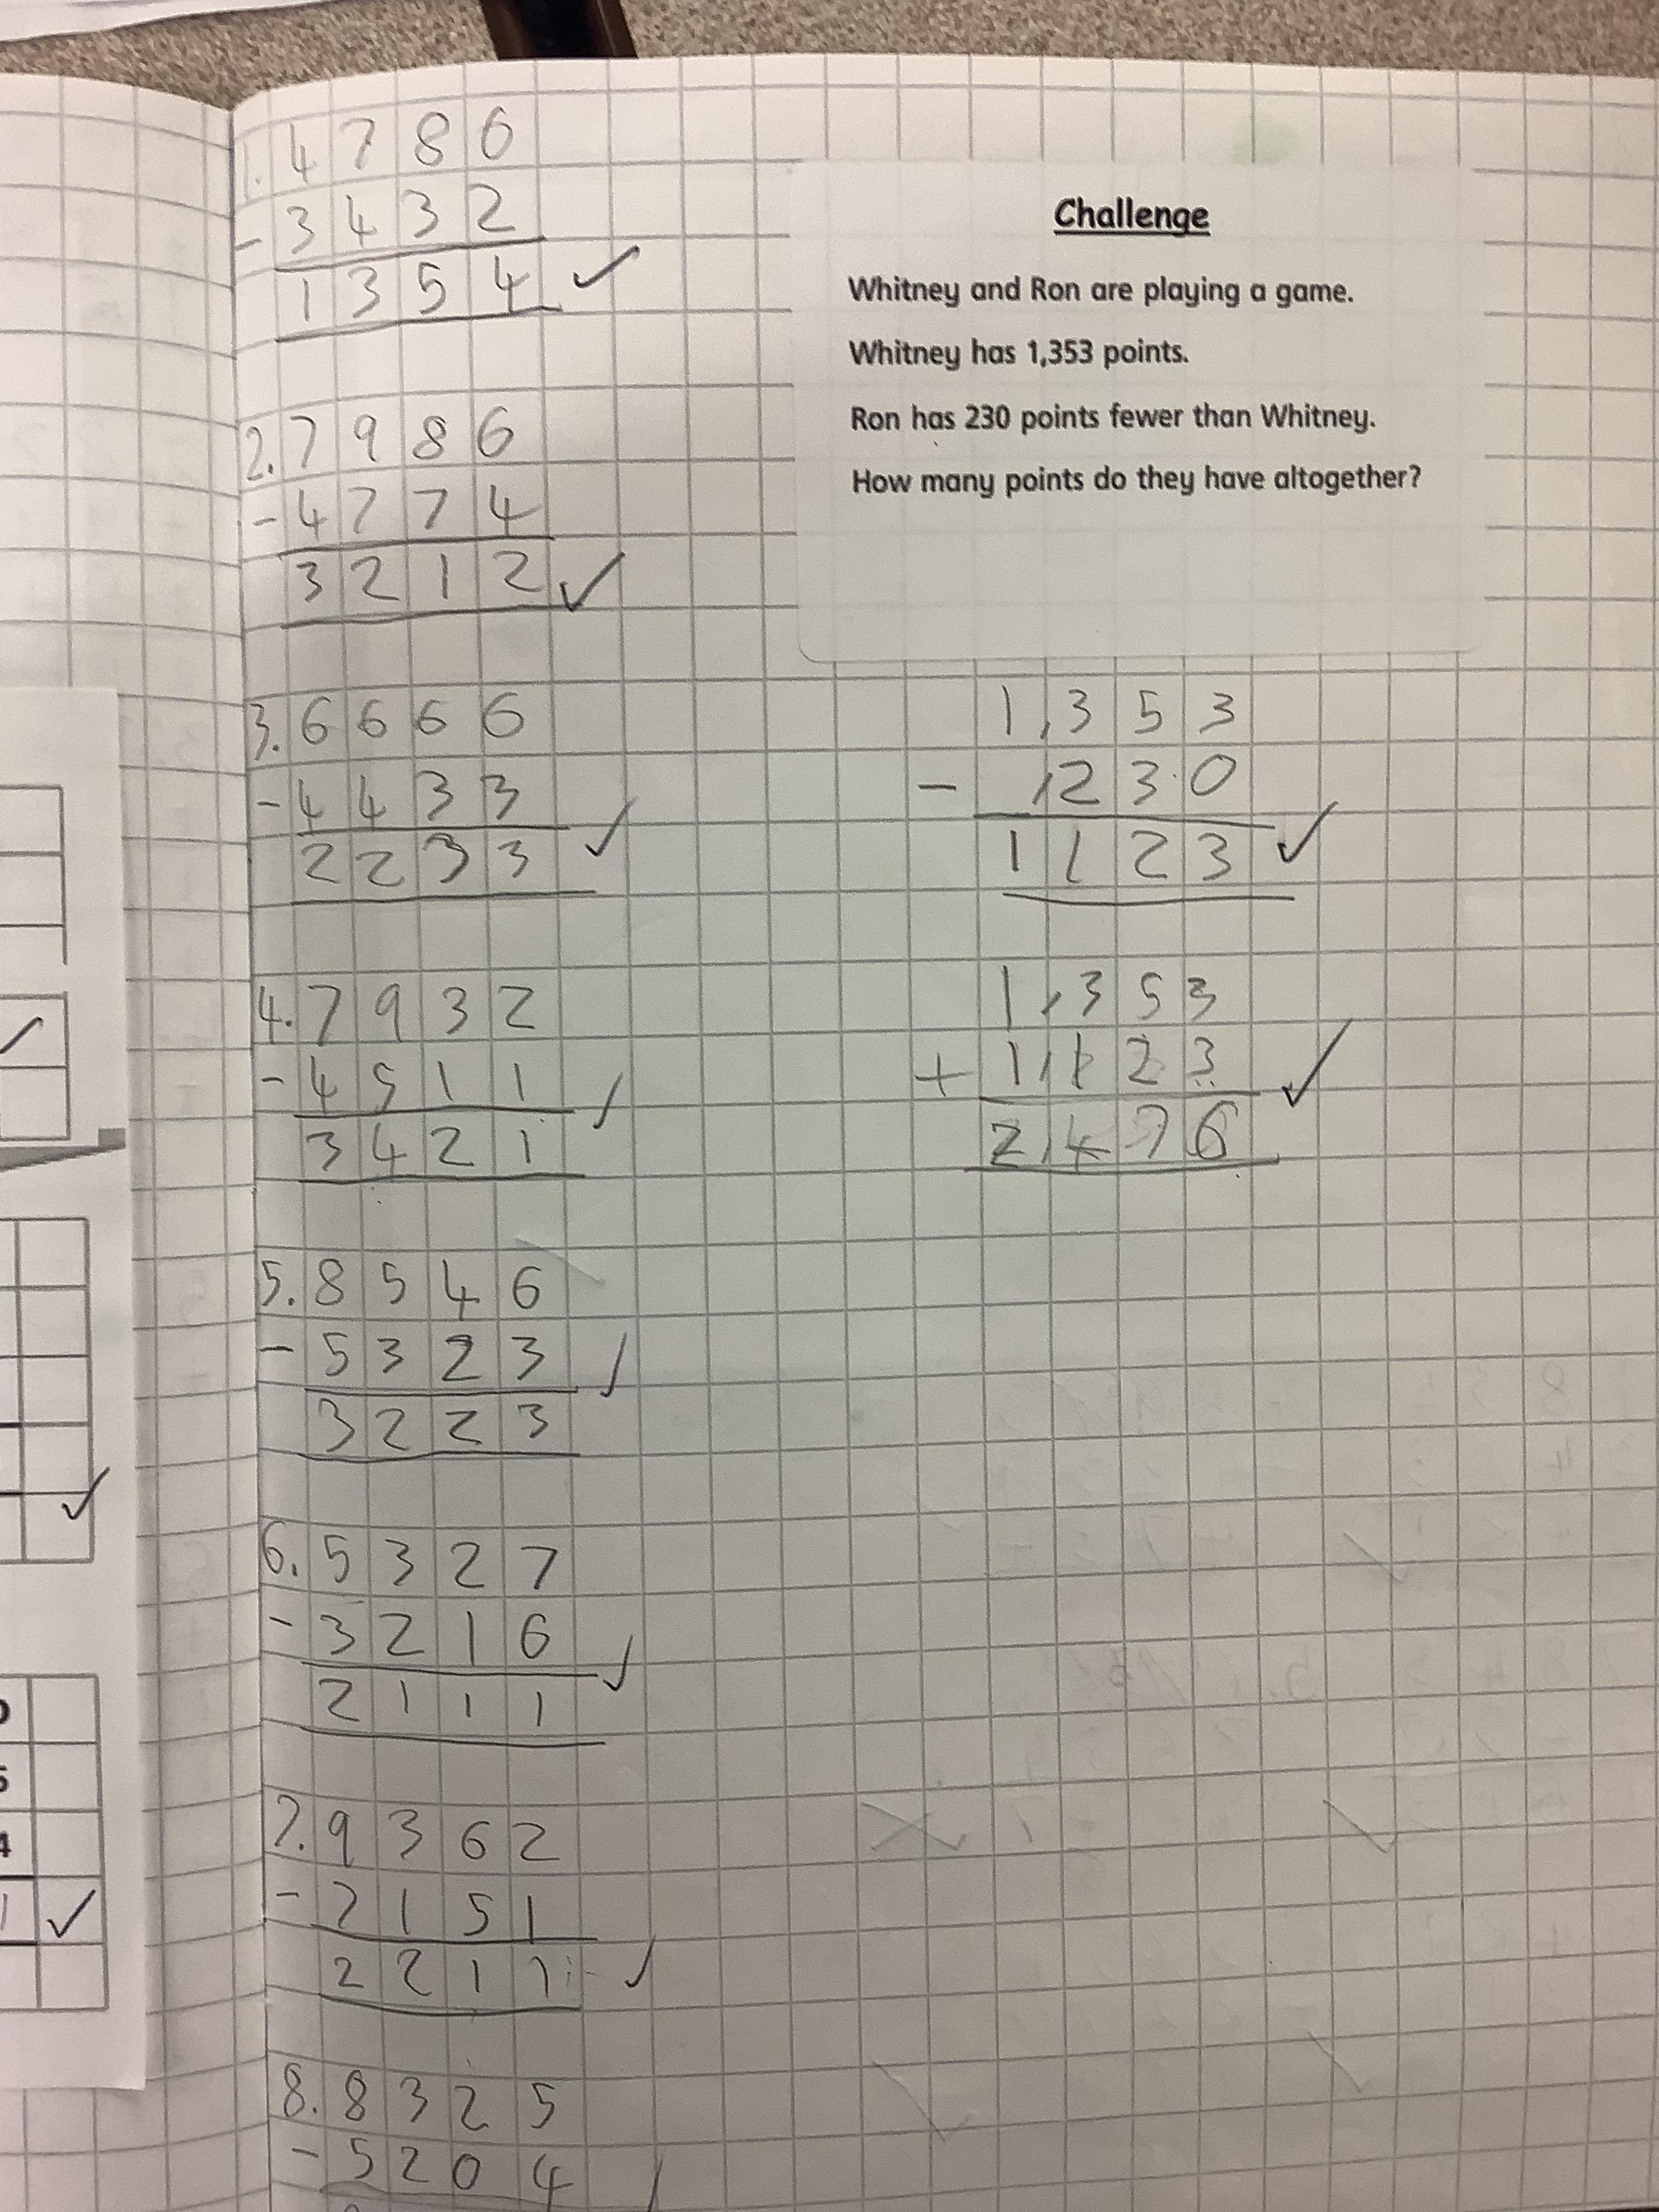 1. 4 7 8 6
- 3 4 3 2
1 3 5 4 ✓
2. 7 9 8 6
- 4 7 7 4
3 2 1 2 ✓
3. 6 6 6 6
- 4 4 3 3
2 2 3 3 ✓
4. 7 9 3 2
- 4 5 1 1
3 4 2 1 ✓
5. 8 5 4 6
- 5 3 2 3
3 2 2 3 ✓
6. 5 3 2 7
- 3 2 1 6
2 1 1 1 ✓
7. 9 3 6 2
- 7 1 5 1
2 2 1 1 ✓
8. 8 3 2 5
- 5 2 0 4
Challenge
Whitney and Ron are playing a game.
Whitney has 1,353 points.
Ron has 230 points fewer than Whitney.
How many points do they have altogether?
1,3 5 3
- ,2 3 0
1 1 2 3 ✓
1,3 5 3
+ 1,1 2 3
2,4 7 6 ✓